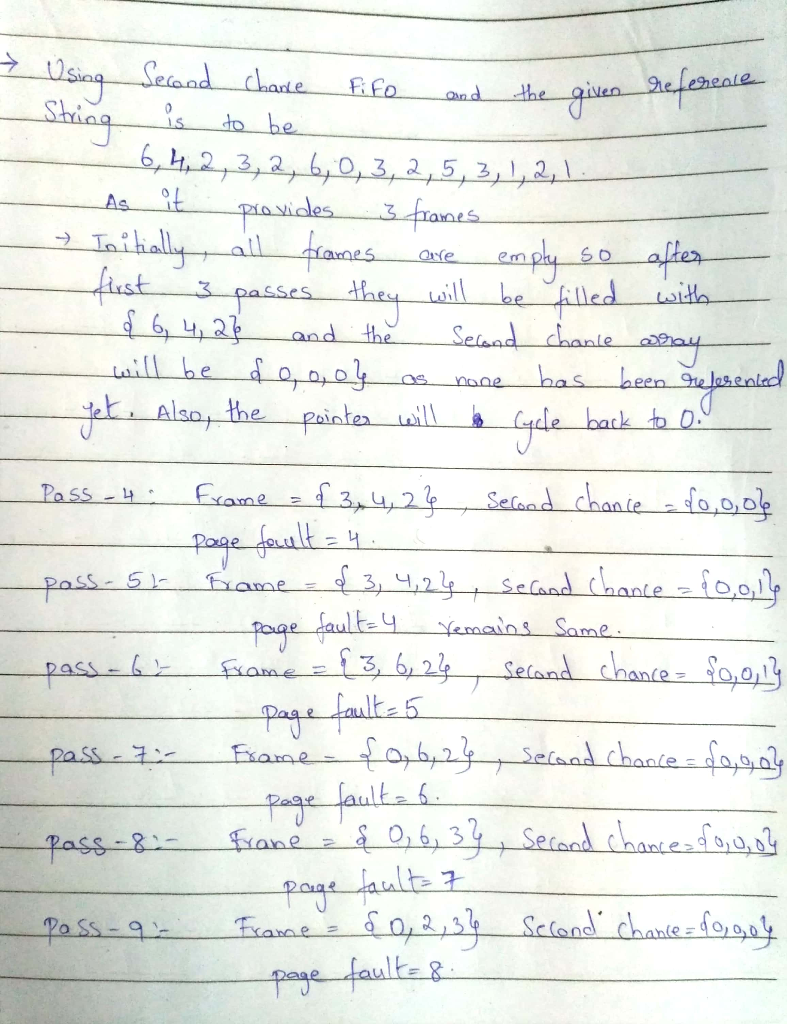 → Using Second chance FiFo and the given reference
String is to be
6, 4, 2, 3, 2, 6, 0, 3, 2, 5, 3, 1, 2, 1.
As it provides 3 frames
→ Initially, all frames are empty so after
first 3 passes they will be filled with
{ 6, 4, 2} and the Second chance array
will be { 0, 0, 0} as none has been referenced
yet. Also, the pointer will cycle back to 0.
Pass - 4 : Frame = { 3, 4, 2 }, Second chance = {0,0,0}
page fault = 4.
pass - 5 :- Frame = { 3, 4, 2}, second chance = {0,0,1}
page fault=4 remains Same.
pass - 6 :- Frame = { 3, 6, 2}, second chance = {0,0,1}
page fault = 5
pass - 7 :- Frame = { 0, 6, 2}, second chance = {0,0,0}
page fault = 6.
pass - 8 :- Frane = { 0, 6, 3}, second chance={0,0,0}
page fault = 7
Pass - 9 :- Frame = { 0, 2, 3} Second chance={0,0,0}
page fault = 8.